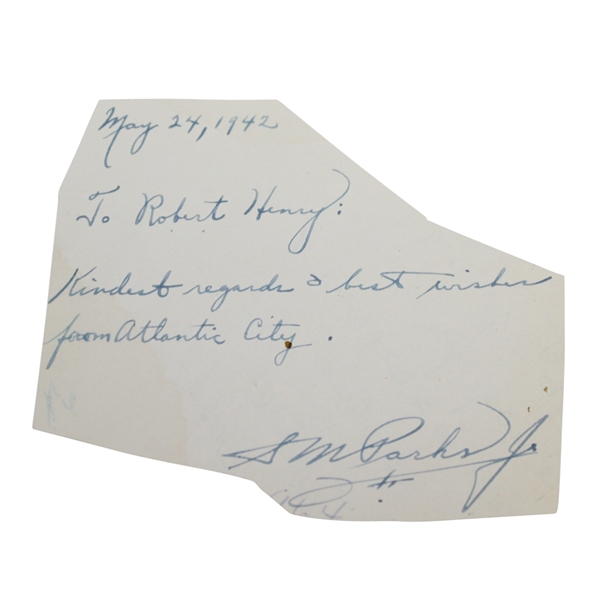 May 24, 1942
To Robert Henry:
Kindest regards & best wishes
from Atlantic City.
S M Parks Jr.